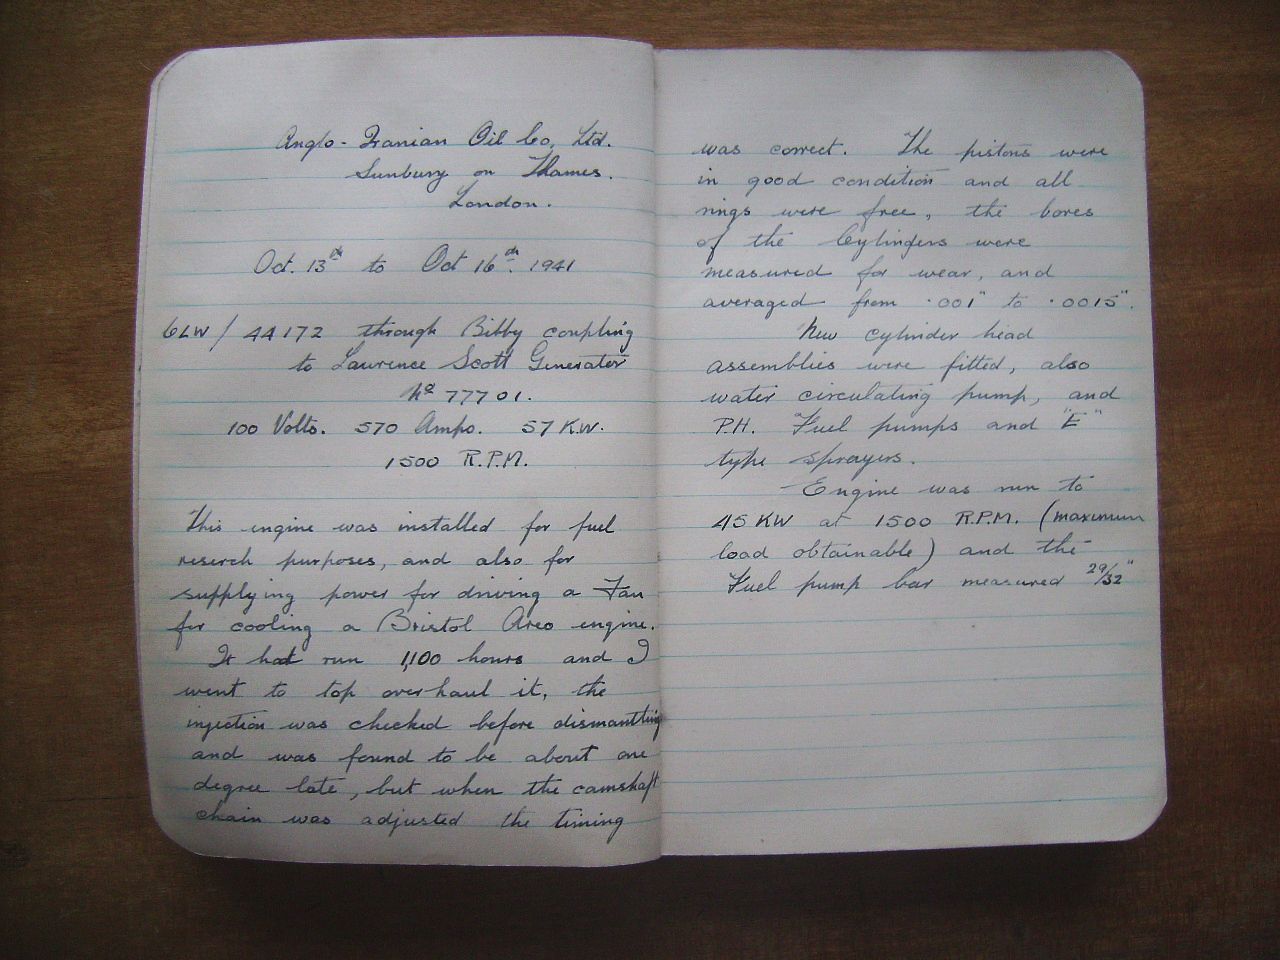 Anglo-Iranian Oil Co, Ltd.
Sunbury on Thames.
London.
Oct. 13th to Oct 16th. 1941
6LW/44172 through Bibby coupling
to Lawrence Scott Generator
No 77701.
100 Volts. 570 Amps. 57 K.W.
1500 R.P.M.
This engine was installed for fuel
reserch purposes, and also for
supplying power for driving a Fan
for cooling a Bristol Areo engine.
It had run 1,100 hours and I
went to top overhaul it, the
injection was checked before dismantling
and was found to be about one
degree late, but when the camshaft
chain was adjusted the timing
was correct. The pistons were
in good condition and all
rings were free, the bores
of the Cylinders were
measured for wear, and
averaged from .001" to .0015".
New cylinder head
assemblies were fitted, also
water circulating pump, and
P.H. Fuel pumps and "E"
type sprayers.
Engine was run to
45 KW at 1500 R.P.M. (maximum
load obtainable) and the
Fuel pump bar measured 29/32"